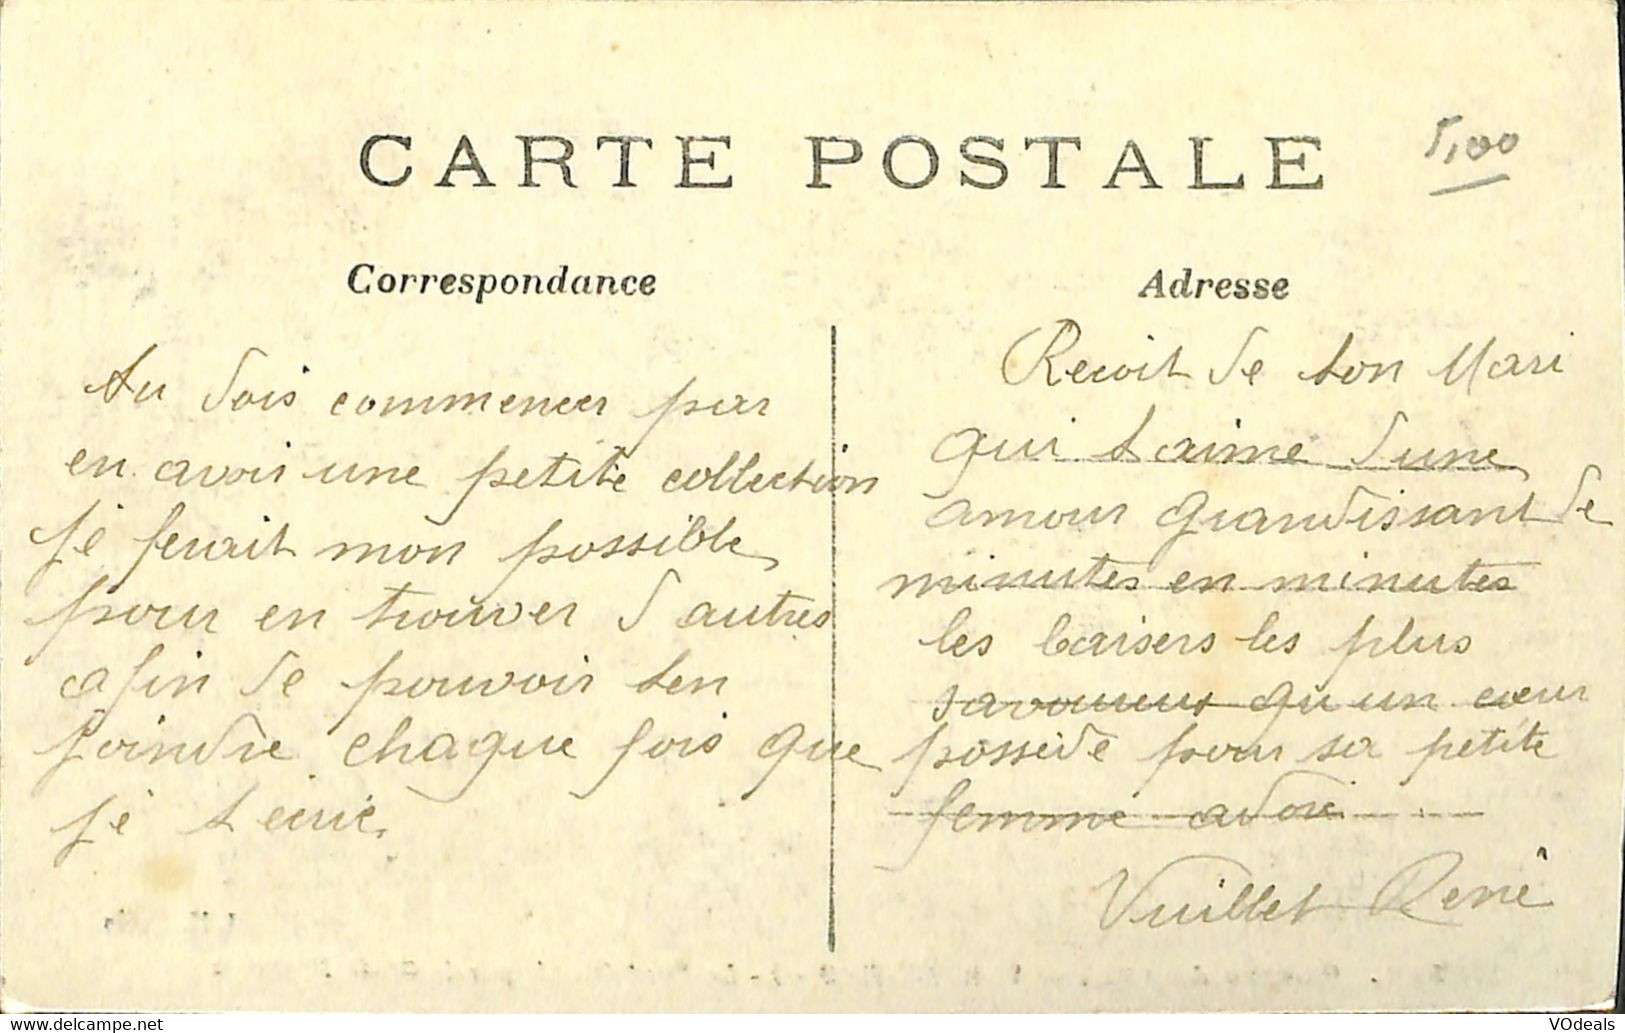 CARTE POSTALE
5,00
Correspondance
tu dois commencer par
en avoir une petite collection
je ferait mon possible
pour en trouver d'autres
afin de pouvoir ten
joindre chaque fois que
je t ecrit
Adresse
Recoit de ton Mari
qui t aime d une
amour grandissant de
minutes en minutes
les baisers les plus
savoureux qu un cœur
possède pour sa petite
femme adoré
Vuillet René
© VOdeals